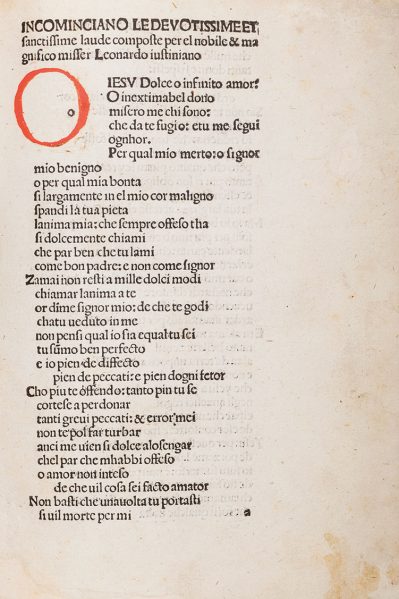 INCOMINCIANO LE DEVOTISSIME ET
sanctissime laude composte per el nobile & ma
gnifico misser Leonardo iustiniano
O IESV Dolce o infinito amor?
o O inextimabel dono
misero me chi sono:
che da te fugio: e tu me segui
ognhor.
Per qual mio merto: o signor
mio benigno
o per qual mia bonta
si largamente in el mio cor maligno
spandi la tua pieta
lanima mia: che sempre offeso tha
si dolcemente chiami
che par ben che tu lami
come bon padre: e non come signor
Zamai non resti a mille dolci modi
chiamar lanima a te
or dime signor mio: de che te godi
cha tu ueduto in me
non pensi qual io sia e qual tu sei
tu sūmo ben perfecto
e io pien de diffecto
pien de peccati: e pien dogni fetor
Cho piu te offendo: tanto piu tu se
cortese a perdonar
tanti greui peccati: & error mei
non te pol far turbar
anci me uien si dolce a losengar
chel par che mhabbi offeso
o amor non inteso
de che uil cosa sei facto amator
Non basti che una uolta tu portasti
si uil morte per mi a